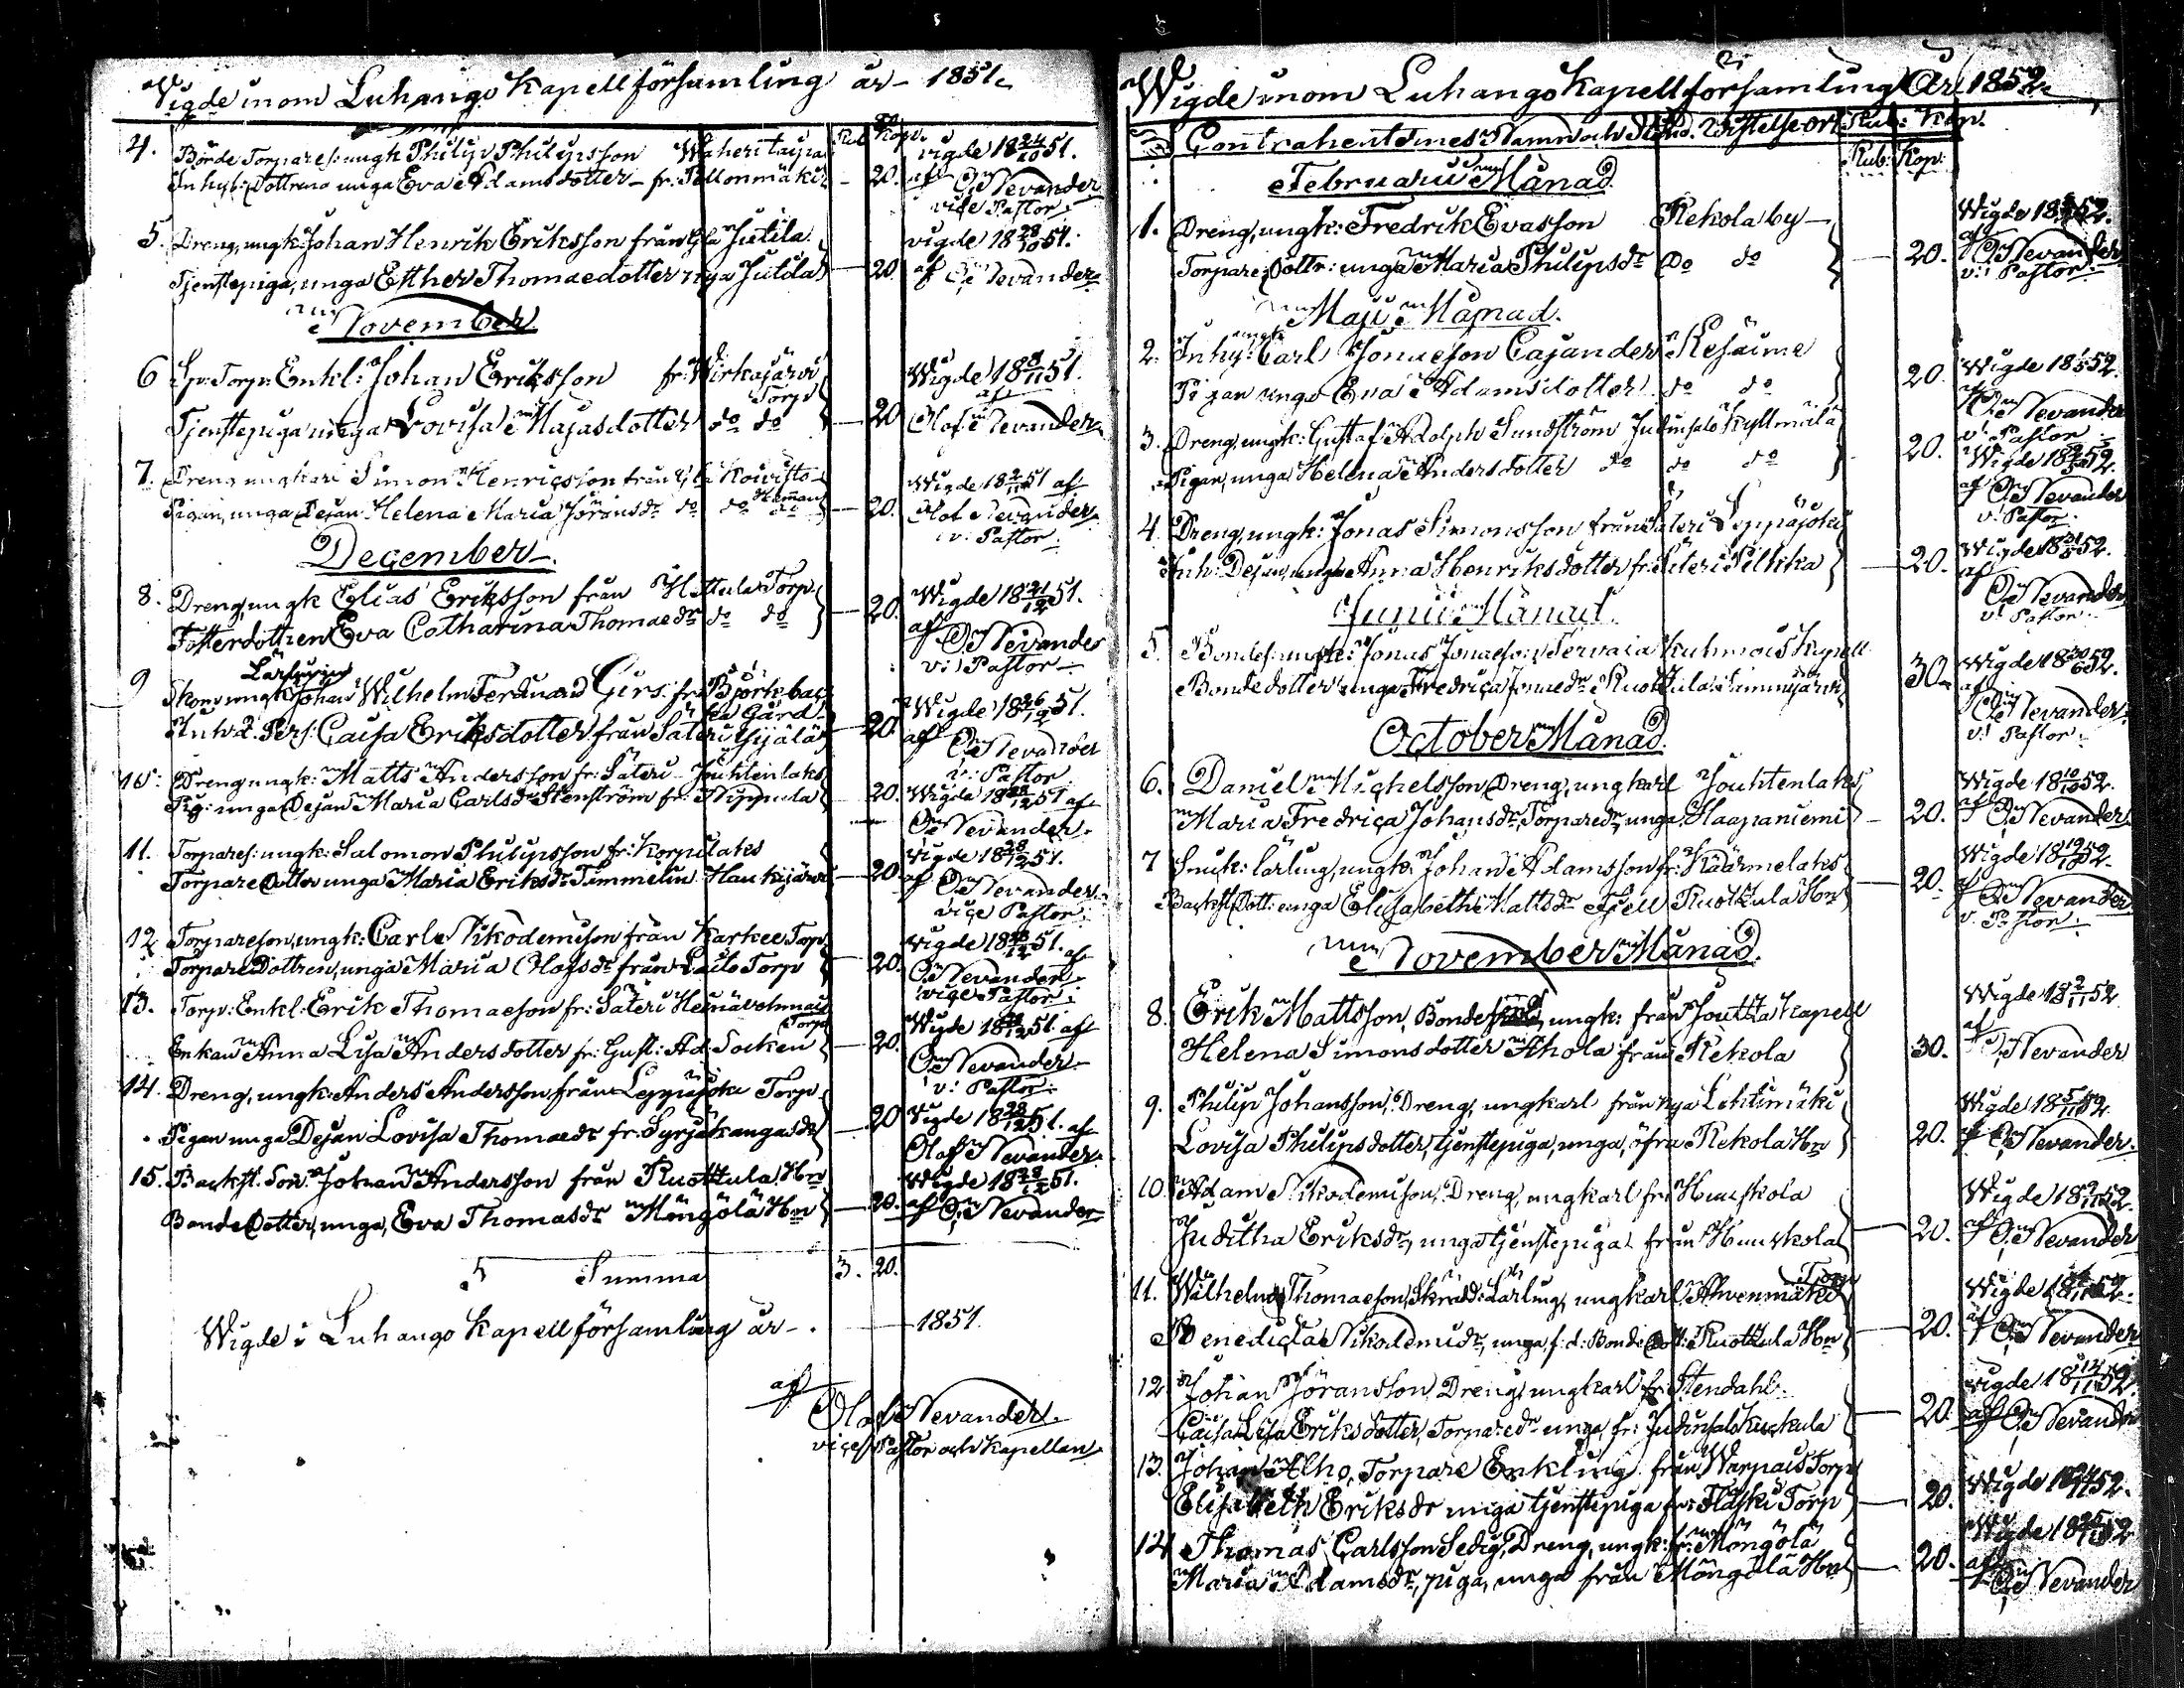 Wigde inom Luhango Kapellförsamling år - 1851.
Rub. Kop.
4. Börde Torpares: ungk Philip Philipsson Waheritaipal
vigde 18 24/10 51.
Inhys: Dottren unga Eva Adamsdotter - fr: Pellonmäki - 20. af O. Nevander
vice Pastor.
5. Dreng, ungk: Johan Henrik Eriksson från Gla Jutila.
vigde 18 28/10 51.
Tjenstepiga, unga Esther Thomaedotter nya Jutila - 20. af O. Nevander
November
6 Sp: Torp: Enkl: Johan Eriksson fr: Wirkajärvi Torp
Wigde 18 8/11 51.
af
Tjenstepiga unga Lovisa Majasdotter do do - 20 Olof Nevander
7. Dreng ungkarl Simon Henricsson från Gla Koivisto
Wigde 18 2/11 51 af
Pigan, unga Dejan Helena Maria Jöransdr do do Heman - 20. Olof Nevander
v: Pastor.
December
8. Dreng, ungk Elias Eriksson från Hettula Torp
Wigde 18 21/12 51.
Fosterdottren Eva Catharina Thomaedr do do - 20. af O. Nevander
v: Pastor
Lärling
9 Skom: ungk Johan Wilhelm Ferdinand Girs. fr: Björkbacka Gård
Wigde 18 26/12 51.
Inhv: Pers: Caisa Eriksdotter från Säteri Hyjälä - 20. af O. Nevander
v: Pastor
10: Dreng ungk: Matts Andersson fr: Säteri Jouhtenlaks
Pig: unga Dejan Maria Carlsdr Stenström fr: Nippula - 20. Wigde 18 28/12 51 af
O. Nevander.
11. Torpares: ungk: Salomon Philipsson fr: Korpilaks
vigde 18 28/12 51.
Torpare Dotter unga Maria Eriksdr Timmelin Haukijärvi - 20 af O. Nevander
vice Pastor
12 Torpareson, ungk: Carl Nikodemison från Karkee Torp
vigde 18 28/12 51. af
Torpare Dottren, unga Maria Olofsdr från Laito Torp - 20. O. Nevander
vice Pastor
13. Torp: Enkl: Erik Thomaeson fr: Säteri Heinävohmais Torp
Wigde 18 28/12 51. af
Enkan Anna Lisa Andersdotter fr: Gust: Ad: Socken - 20. O. Nevander
v: Pastor.
14. Dreng, ungk: Anders Andersson från Leppäjoki Torp
Pigan unga Dejan Lovisa Thomaedr fr: Syrjäkangas do - 20 Vigde 18 28/12 51. af
Olof Nevander
15. Backst. Son. Johan Andersson från Ruottula Hn
Wigde 18 28/12 51.
Bonde Dotter, unga, Eva Thomasdr Möngölä Hn - 20. af O. Nevander
Summa 3. 20.
Wigde i Luhango Kapellförsamling år - 1851
af
Olof Nevander
vice Pastor och Kapellan
Wigde inom Luhango Kapellförsamling År 1852.
Contrahenternes Namn och Stånd. Wistelse ort Rub: Kop.
Rub: Kop:
Februarii Månad
1. Dreng, ungk: Fredrik Evasson Rekola by
Wigde 18 52.
Torpare Dottr: unga Maria Philipsdr Do do - 20. af O. Nevander
v: Pastor
Maji Månad.
2. Inhy: ungk Carl Jonaeson Cajander Kesäime
Wigde 18 52.
Pigan unga Eva Adamsdotter do do 20. af O. Nevander
v: Pastor
3. Dreng, ungk: Gustaf Adolph Sundström Judinsalo Kyllmälä
Wigde 18 52.
Pigan, unga Helena Andersdotter do do do 20. af O. Nevander
v: Pastor
4. Dreng, ungk: Jonas Simonsson från Säteri Leppäjoki
Wigde 18 31/5 52.
Inh: Dejan, unga Anna Henriksdotter fr: Säteri Pilkka - 20. af
O. Nevander
v: Pastor
Junii Månad.
5. Bondes: ungk: Jonas Jonaeson, Tervala Kuhmois Kapell
Wigde 18 20/6 52.
Bondedotter unga Fredrica Jonaedr Ruottula Tammijärvi 30. af
O. Nevander
v: Pastor.
October Månad
6. Daniel Michelsson, Dreng, ungkarl Jouhtenlaks
Wigde 18 10/10 52.
Maria Fredrica Johansdr, Torparedr, unga, Haapaniemi - 20. af O. Nevander
7 Smed: lärling, ungk: Johan Adamsson fr: Käärmelaks
Wigde 18 19/10 52.
Backst Dott: unga Elisabeth Mattsdr Fjell Ruottula Hn - 20. af O. Nevander
v. Pastor.
November Månad
8. Erik Mattsson, Bonde, ungk: från Joutsa Kapell
Wigde 18 2/11 52
Helena Simonsdotter Ahola från Rekola 30. af O. Nevander
9. Philip Johansson, Dreng, ungkarl från nya Lehtimäki
Wigde 18 5/11 52.
Lovisa Philipsdotter, tjenstepiga, unga, öfra Rekola Hn 20. af O. Nevander.
10. Adam Nikodemison, Dreng, ungkarl fr: Humskola
Wigde 18 9/11 52.
Juditha Eriksdr, unga tjenstepiga från Humskola - 20. af O. Nevander
11. Wilhelm Thomaeson, Skrädd: Lärling, ungkarl, Ahvenmäki Torp
Wigde 18 52.
Benedicta Nikodemidr, unga, f: d: Bonde Dott: Ruottula Hn - 20. af O. Nevander
12. Johan Jöransson Dreng ungkarl fr: Stendahl.
vigde 18 14/11 52.
Caisa Lisa Eriksdotter, Torparedr unga, fr: Judinsalo Kuckula - 20. af O. Nevander
13. Johan Alho, Torpare Enkling. från Warpais Torp
Wigde 18 52.
Elisabeth Eriksdr unga tjenstepiga fr: Flaski Torp - 20.
14 Thomas Carlsson Sedig, Dreng, ungk: fr: Möngölä
Wigde 18 52
Maria Adamsdr, piga, unga från Möngölä Hn - 20. af O. Nevander